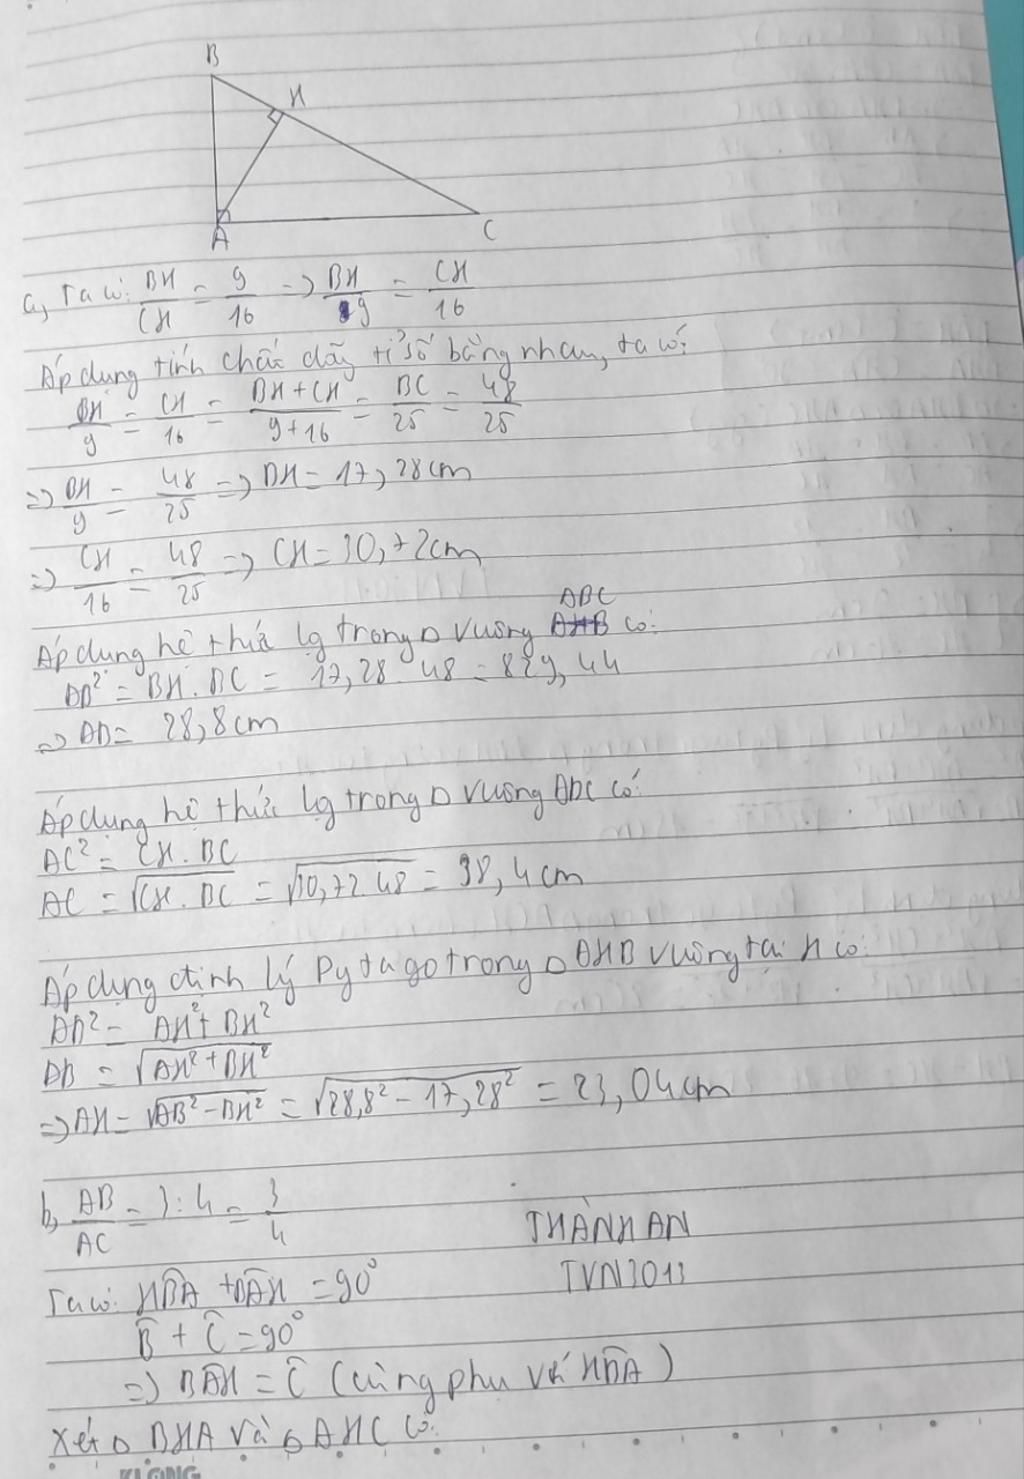 B
H
A
C
a, Ta có: BH/CH = 9/16 => BH/9 = CH/16
Áp dụng tính chất dãy tỉ số bằng nhau, ta có:
BH/9 = CH/16 = (BH+CH)/(9+16) = BC/25 = 48/25
=> BH/9 = 48/25 => BH = 17,28cm
=> CH/16 = 48/25 => CH = 30,72cm
ABC
Áp dụng hệ thức lg trong Δ vuông AHB có:
AB² = BH . BC = 17,28 . 48 = 829,44
=> AB = 28,8cm
Áp dụng hệ thức lg trong Δ vuông ABC có:
AC² = CH . BC
AC = √(CH . BC) = √(30,72.48) = 38,4cm
Áp dụng định lý Pytago trong Δ AHB vuông tại H có:
AB² = AH² + BH²
AB = √(AH² + BH²)
=> AH = √(AB² - BH²) = √(28,8² - 17,28²) = 23,04cm
b, AB/AC = 3:4 = 3/4
THÀNH AN
TVN3013
Ta có: HBA + BAH = 90°
B̂ + Ĉ = 90°
=> BAH = Ĉ (cùng phụ với HBA)
Xét Δ BHA và Δ AHC có:
KLONG